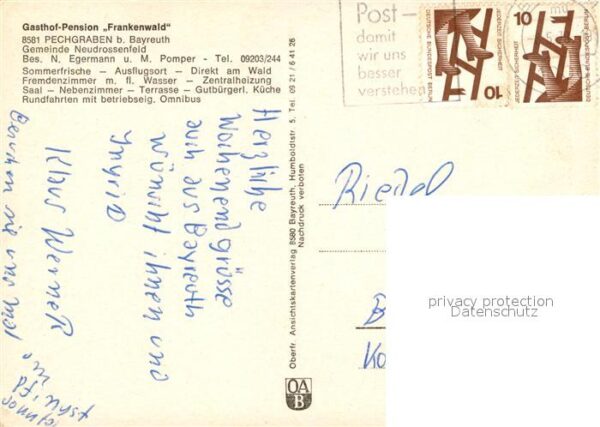 Gasthof-Pension „Frankenwald"
8581 PECHGRABEN b. Bayreuth
Gemeinde Neudrossenfeld
Bes. N. Egermann u. M. Pomper - Tel. 09203/244
Sommerfrische — Ausflugsort — Direkt am Wald
Fremdenzimmer m. fl. Wasser — Zentralheizung
Saal — Nebenzimmer — Terrasse — Gutbürgerl. Küche
Rundfahrten mit betriebseig. Omnibus
Herzliche
Wochenendgrüsse
auch aus Bayreuth
wünscht ihnen und
Ingrid
Klaus Werner
uns mal
Oberfr. Ansichtskartenverlag 8580 Bayreuth, Humboldtstr. 5, Tel. 09 21 / 6 41 26
Nachdruck verboten
OA
B
Post -
damit
wir uns
besser
verstehen
DEUTSCHE BUNDESPOST BERLIN
JEDERZEIT SICHERHEIT
10
10
JEDERZEIT SICHERHEIT
Riedel
privacy protection
Datenschutz